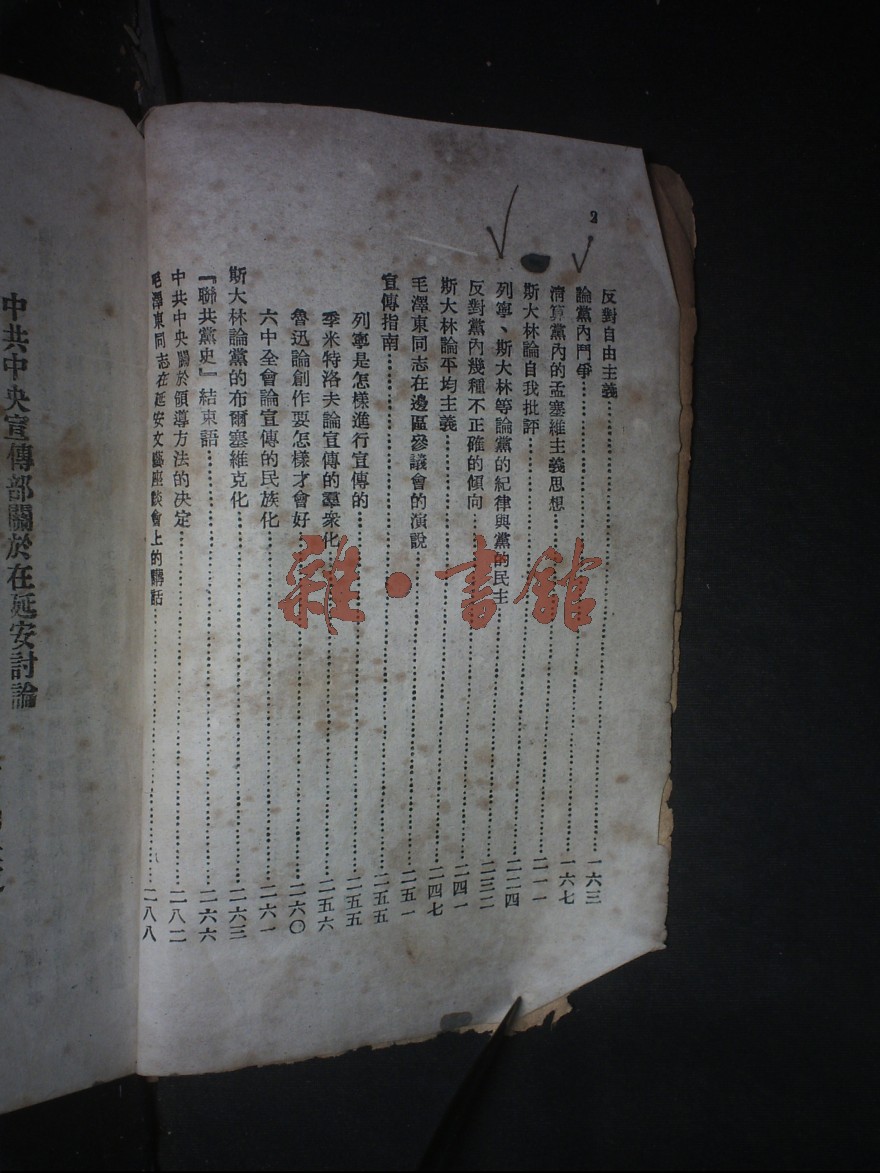 2
反對自由主義…………一六三
論黨內鬥爭…………一六七
清算黨內的孟塞維主義思想…………二一一
斯大林論自我批評…………二二四
列寧、斯大林等論黨的紀律與黨的民主…………二三二
反對黨內幾種不正確的傾向…………二四一
斯大林論平均主義…………二四七
毛澤東同志在邊區參議會的演說…………二五一
宣傳指南…………二五五
列寧是怎樣進行宣傳的…………二五五
季米特洛夫論宣傳的羣衆化…………二五六
魯迅論創作要怎樣才會好…………二六〇
六中全會論宣傳的民族化…………二六一
斯大林論黨的布爾塞維克化…………二六三
『聯共黨史』結束語…………二六六
中共中央關於領導方法的決定…………二八二
毛澤東同志在延安文藝座談會上的講話…………二八八
中共中央宣傳部關於在延安討論
雜·書館